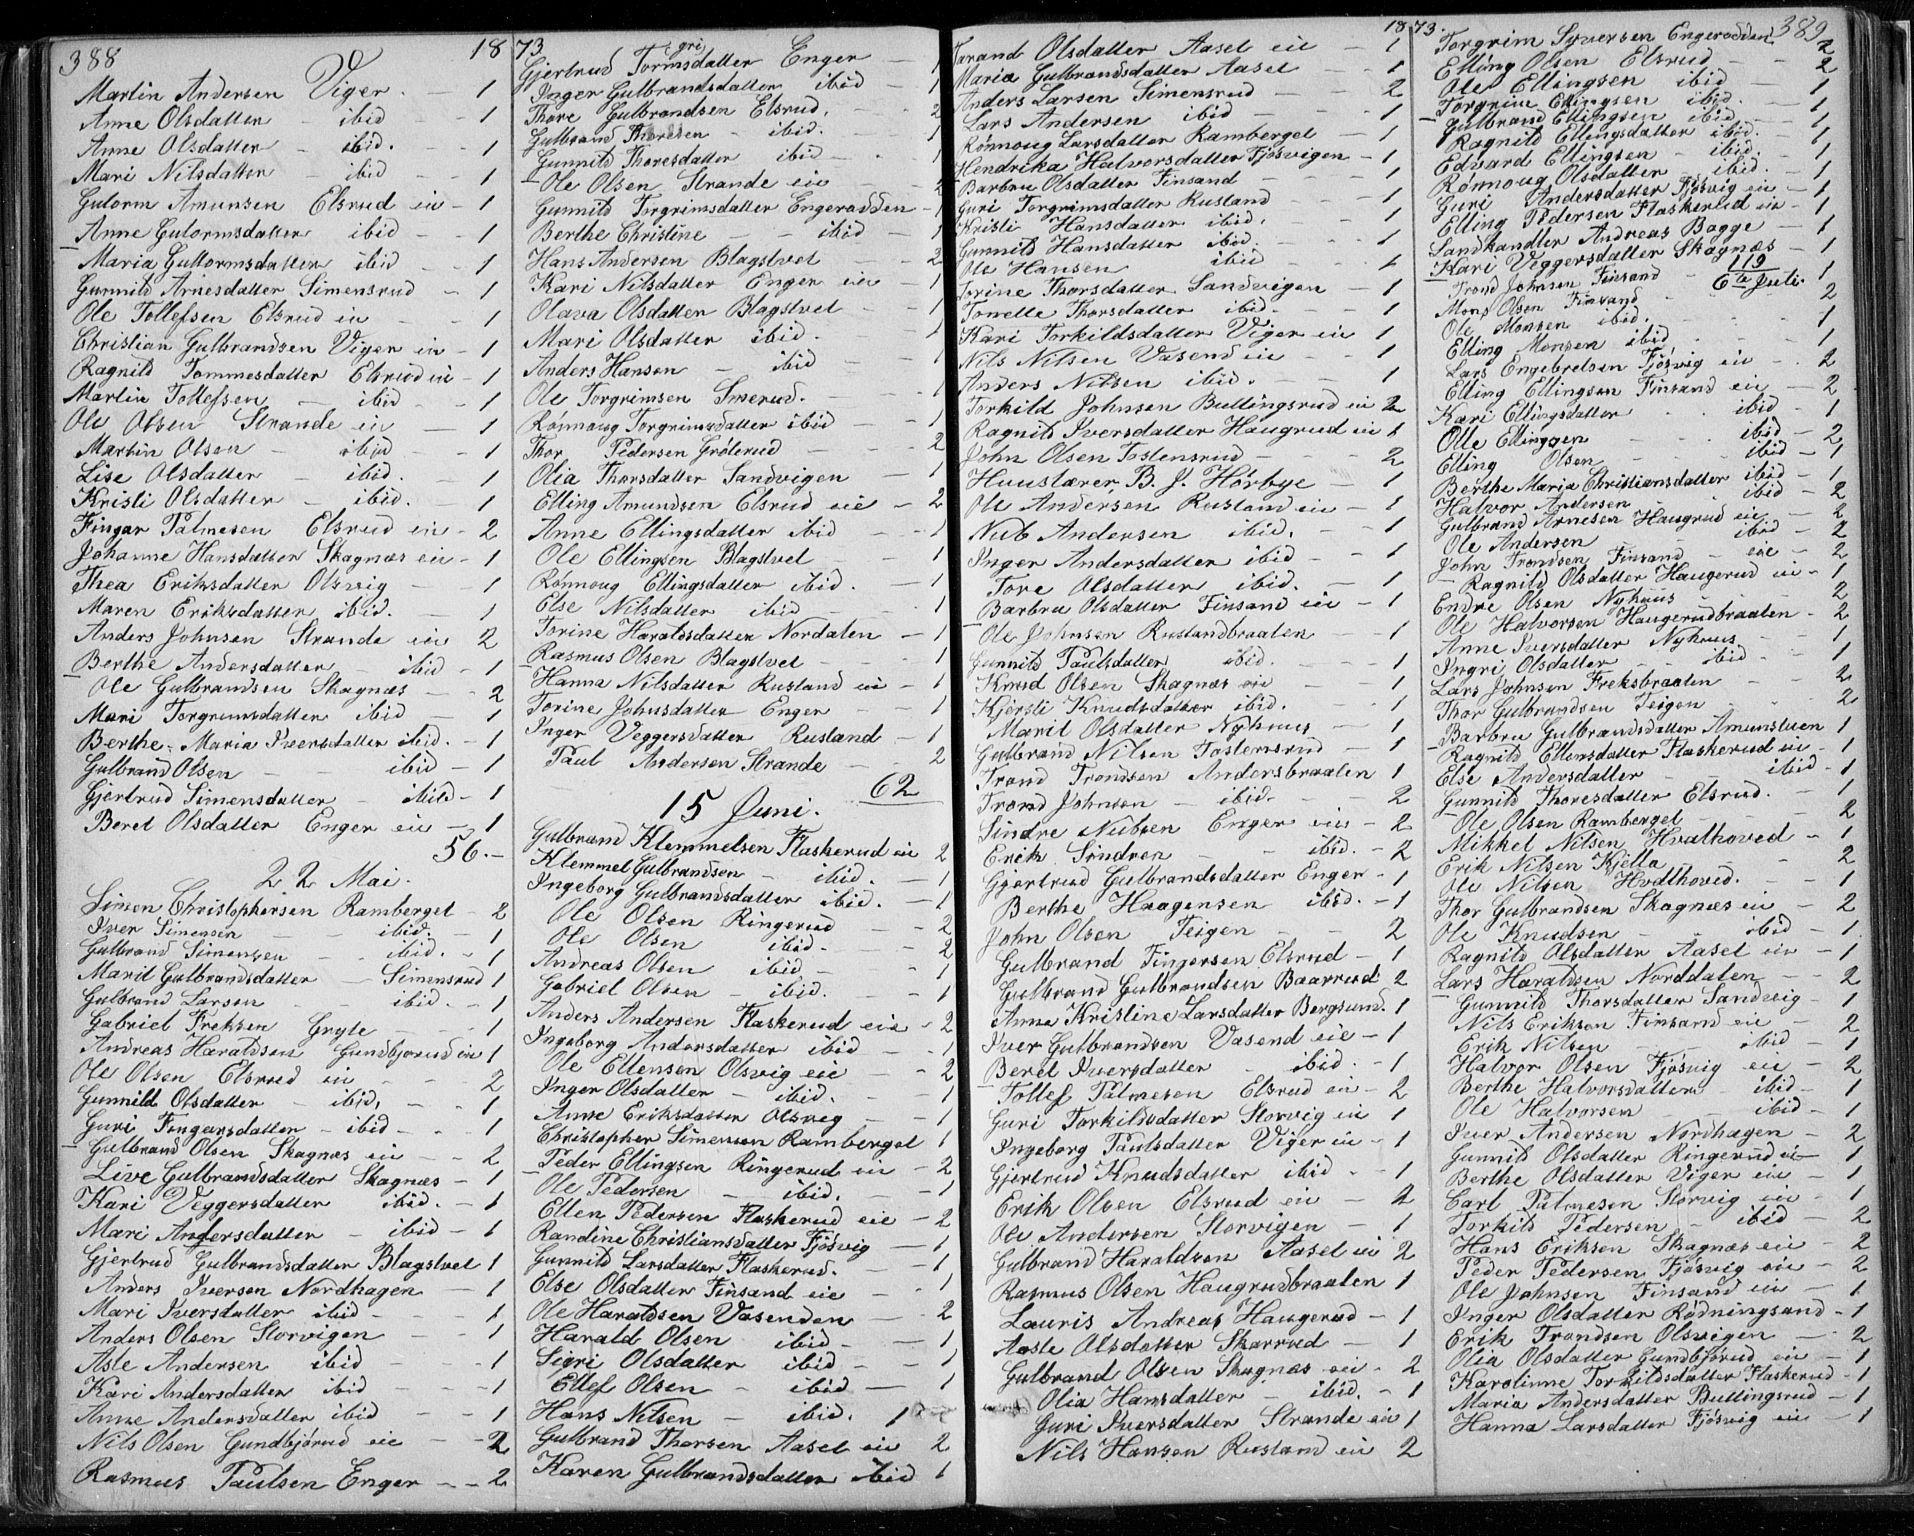 388
18 73
Martin Andersen Viger. — 1
Anne Olsdatter — ibid — 1
Anne Olsdatter — ibid. — 1
Mari Nilsdatter — ibid — 1
Gutorm Amunsen Elsrud eie — 1
Anne Gutormsdatter ibid — 1
Maria Guttormsdatter ibid — 1
Gunnild Arnesdatter Simensrud — 1
Ole Tollefsen Elsrud eie — 1
Christian Gulbrandsen Viger eie — 1
Ragnild Tommesdatter Elsrud eie — 1
Martin Tollefsen — ibid — 1
Ole Olsen Strande eie — 1
Martin Olsen — ibid — 1
Lise Olsdatter — ibid. — 1
Kristi Olsdatter — ibid. — 1
Fingar Palmesen Elsrud eie — 2
Johanne Hansdatter Skagnæs eie — 1
Thea Eriksdatter Olsvig — 1
Maren Eriksdatter ibid. — 1
Anders Johnsen Strande eie 2
Berthe Andersdatter — ibid — 1
Ole Gulbrandsen Skagnæs — 2
Mari Torgrimsdatter ibid — 1
Berthe Maria Iversdatter ibid. — 1
Gulbrand Olsen — ibid — 1
Gjertrud Simensdatter — ibid — 1
Beret Olsdatter Enger eie — 1
56. —
22 Mai.
Simen Christophersen Ramberget — 2
Iver Simensen — ibid. — 1
Gulbrand Simensen — ibid. — 1
Marit Gulbrandsdatter — Simensrud 1
Gulbrand Larsen — ibid. — 1
Gabriel Freksen Gryte — 1
Andreas Haraldsen Gundbjørud eie 1
Ole Olsen Elsrud eie — 2
Gunnild Olsdatter — ibid, — 1
Guri Fingarsdatter — ibid — 1
Gulbrand Olsen Skagnæs eie — 2
Live Gulbrandsdatter Skagnæs — 1
Kari Veggersdatter ibid. — 1
Mari Andersdatter — ibid — 1
Gjertrud Gulbrandsdatter Blagstvet 1
Anders Iversen Nordhagen — 1
Mari Iversdatter ibid — 1
Anders Olsen Storvigen — 1
Asle Andersen ibid — 1
Kari Andersdatter ibid — 1
Anne Andersdatter ibid — 1
Nils Olsen Gundbjørud eie — 2
Rasmus Paulsen Enger — 2
Gjertrud Tormsdatter Enger — 1
gri
Inger Gulbrandsdatter ibid — 1
Thore Gulbrandsen Elsrud. 2
Gulbrand Thoresen — ibid. 1
Gunnild Thoresdatter ibid — 1
Ole Olsen Strande eie — 2
Gunnild Torgrimsdatter Engerodden — 1
Berthe Christine — ibid — 1
Hans Andersen Blagstvet — 2
Kari Nilsdatter Enger eie — 1
Olava Olsdatter Blagstvet — 1
Mari Olsdatter ibid. 1
Anders Hansen — ibid 1
Ole Torgrimsen Smerud. — 1
Rønnoug Torgrimsdatter ibid — 1
Thor Pedersen Grøterud — 2
Olia Thorsdatter Sandvigen 1
Elling Amundsen Elsrud eie — 2
Anne Ellingsdatter ibid — 1
Ole Ellingsen Blagstvet — 1
Rønnoug Ellingsdatter ibid. 1
Else Nilsdatter ibid — 1
Torine Haraldsdatter Nordalen — 1
Rasmus Olsen Blagstvet — 1
Hanna Nilsdatter Rustand eie — 1
Torine Johnsdatter Enger — 1
Inger Veggersdatter Rustand — 1
Paul Andersen Strande — 2
62
15 Juni.
Gulbrand Klemmetsen Flaskerud eie 2
Klemmet Gulbrandsen — ibid. — 1
Ingeborg Gulbrandsdatter ibid. — 1
Ole Olsen Ringerud — 2
Ole Olsen ibid. — 2
Andreas Olsen ibid — 1
Gabriel Olsen — ibid. — 1
Anders Andersen Flaskerud eie — 2
Ingeborg Andersdatter ibid — 1
Ole Ellensen Olsvig eie — 2
Inger Olsdatter — ibid. — 1
Anne Eriksdatter Olsvig — 1
Christopher Simensen Ramberget 1
Peder Ellingsen Ringerud eie — 2
Ole Pedersen — ibid. — 1
Ellen Pedersen Flaskerud eie — 2
Randine Christiansdatter Fjøsvig — 1
Gunnild Larsdatter Flaskerud. — 1
Else Olsdatter Finsand eie — 1
Ole Haraldsen Vasenden — 2
Harald Olsen ibid — 1
Sigri Olsdatter ibid — 1
Ellef Olsen — ibid — 1
Hans Nilsen — ibid. 1
Gulbrand Thorsen Aasel eie 2
Karen Gulbrandsdatter ibid 1
18 73.
389
Tarand Olsdatter Aasel eie — 1
Maria Gulbrandsdatter Aasel — 1
Anders Larsen Simensrud — 2
Lars Andersen ibid — 1
Rønnoug Larsdatter Ramberget — 1
Hendrika Halvorsdatter Fjøsvigen — 1
Barbru Olsdatter Finsand — 1
Guri Torgrimsdatter Rustand — 1
Kristi Hansdatter ibid. — 1
Gunnild Hansdatter ibid. — 1
Ole Hansen ibid — 1
Torine Thorsdatter Sandvigen — 1
Tonette Thorsdatter ibid. — 1
Kari Torkildsdatter Viger eie — 1
Nils Nilsen Vasend eie — 1
Anders Nilsen ibid. — 1
Torkild Johnsen Bullingsrud eie 2
Ragnild Iversdatter Haugrud eie 1
John Olsen Tostensrud — 2
Huuslærer B. J. Hørbye — 1
Ole Andersen Rustand eie — 1
Nub Andersen ibid. 1
Inger Andersdatter ibid — 1
Tore Olsdatter ibid. — 1
Barbru Olsdatter Finsand eie — 1
Ole Johnsen Rustandbraaten — 1
Gunnild Paulsdatter ibid. — 1
Knud Olsen Skagnæs eie — 1
Kjersti Knudsdatter ibid. — 1
Marit Olsdatter Nyhuus — 1
Gulbrand Nilsen Tostensrud — 1
Trond Trondsen Andersbraaten 1
Trond Johnsen — ibid. — 2
Sindre Nubsen Enger eie — 2
Erik Sindren — ibid. — 2
Gjertrud Gulbrandsdatter Enger — 1
Berthe Haagensen ibid. — 1
John Olsen Teigen — 2
Gulbrand Fingersen Elsrud — 1
Gulbrand Gulbrandsen Baarrud 2
Anne Kristine Larsdatter Bergsund. 1
Iver Gulbrandsen Vasend eie — 1
Beret Iversdatter ibid. — 1
Tollef Palmesen Elsrud eie — 2
Guri Torkildsdatter Storvig eie 1
Ingeborg Paulsdatter Viger eie — 1
Gjertrud Knudsdatter ibid. — 1
Erik Olsen Elsrud eie — 2
Ole Andersen Storvigen — 1
Gulbrand Haraldsen Aasel eie 2
Rasmus Olsen Haugrudbraaten 1
Lauris Andreas Haugerud — 1
Aasle Olsdatter Skarrud — 1
Gulbrand Olsen Skagnæs eie — 2
Olia Hansdatter — ibid. — 1
Guri Iversdatter Strande eie 1
Nils Hansen Rustand eie 2
Torgrim Syversen Engerodden 2
Elling Olsen Elsrud — 2
Ole Ellingsen ibid — 1
Torgrim Ellingsen ibid. — 1
Gulbrand Ellingsen ibid — 1
Ragnild Ellingsdatter ibid. 1
Edvard Ellingsen — ibid. — 1
Rønnoug Olsdatter ibid. — 1
Guri Andersdatter Fjøsvig eie — 1
Elling Pedersen Flaskerud eie — 1
Landhandler Andreas Bagge — 1
Kari Veggersdatter Skagnæs — 1
119
6te Juli.
Trond Johnsen Finsand — 1
Mons Olsen Finsand — 2
Ole Monsen ibid. — 1
Elling Monsen ibid. — 1
Lars Engebretsen Fjøsvig eie — 2
Elling Ellingsen Finsand eie — 2
Kari Ellingsdatter ibid — 1
Olle Ellingsen — ibid — 2
Elling Olsen — ibid — 1
Berthe Maria Christiansdatter ibid — 1
Halvor Andersen ibid — 2
Gulbrand Arnesen Haugrud eie — 2
Ole Andersen ibid — 2
John Trondsen Finsand — eie — 2
Ragnild Olsdatter Haugerud eie — 1
Endre Olsen Nyhuus — 2
Ole Halvorsen Haugerudbraaten — 2
Anne Iversdatter Nyhuus — 1
Ingri Olsdatter — ibid — 1
Lars Johnsen Freksbraaten — 2
Thor Gulbrandsen Teigen — 2
Barbru Gulbrandsdatter Amunstuen 1
Ragnild Ellensdatter Flaskerud eie — 1
Else Andersdatter — ibid — 1
Gunnild Thoresdatter Elsrud. — 1
Ole Olsen Ramberget — 2
Mikkel Nilsen Hvalhoved — 1
Erik Nilsen Kjella — 2
Ole Nilsen Hvalhoved. — 1
Thor Gulbrandsen Skagnæs eie — 2
Ole Knudsen — ibid — 1
Ragnild Olsdatter Aasel eie — 1
Lars Haraldsen Norddalen — 2
Gunnild Thorsdatter Sandvig — 1
Nils Eriksen Finsand eie — 2
Erik Nilsen — ibid — 1
Halvor Olsen Fjøsvig eie — 2
Berthe Halvorsdatter ibid — 1
Ole Halvorsen — ibid — 1
Iver Andersen Nordhagen — 2
Gunnild Olsdatter Ringerud eie — 1
Berthe Olsdatter Viger eie — 1
Carl Palmesen Storvig eie — 1
Torkild Pedersen — ibid 2
Hans Eriksen Skagnæs eie — 2
Peder Pedersen Fjøsvig eie — 2
Ole Johnsen Finsand eie — 1
Inger Olsdatter Rødningsand — 1
Erik Trondsen Olsvigen — 2
Olia Olsdatter Gundbjørud eie — 1
Karolinne Torkildsdatter Flaskerud — 1
Maria Andersdatter Bullingsrud — 1
Hanna Larsdatter Fjøsvig eie — 1